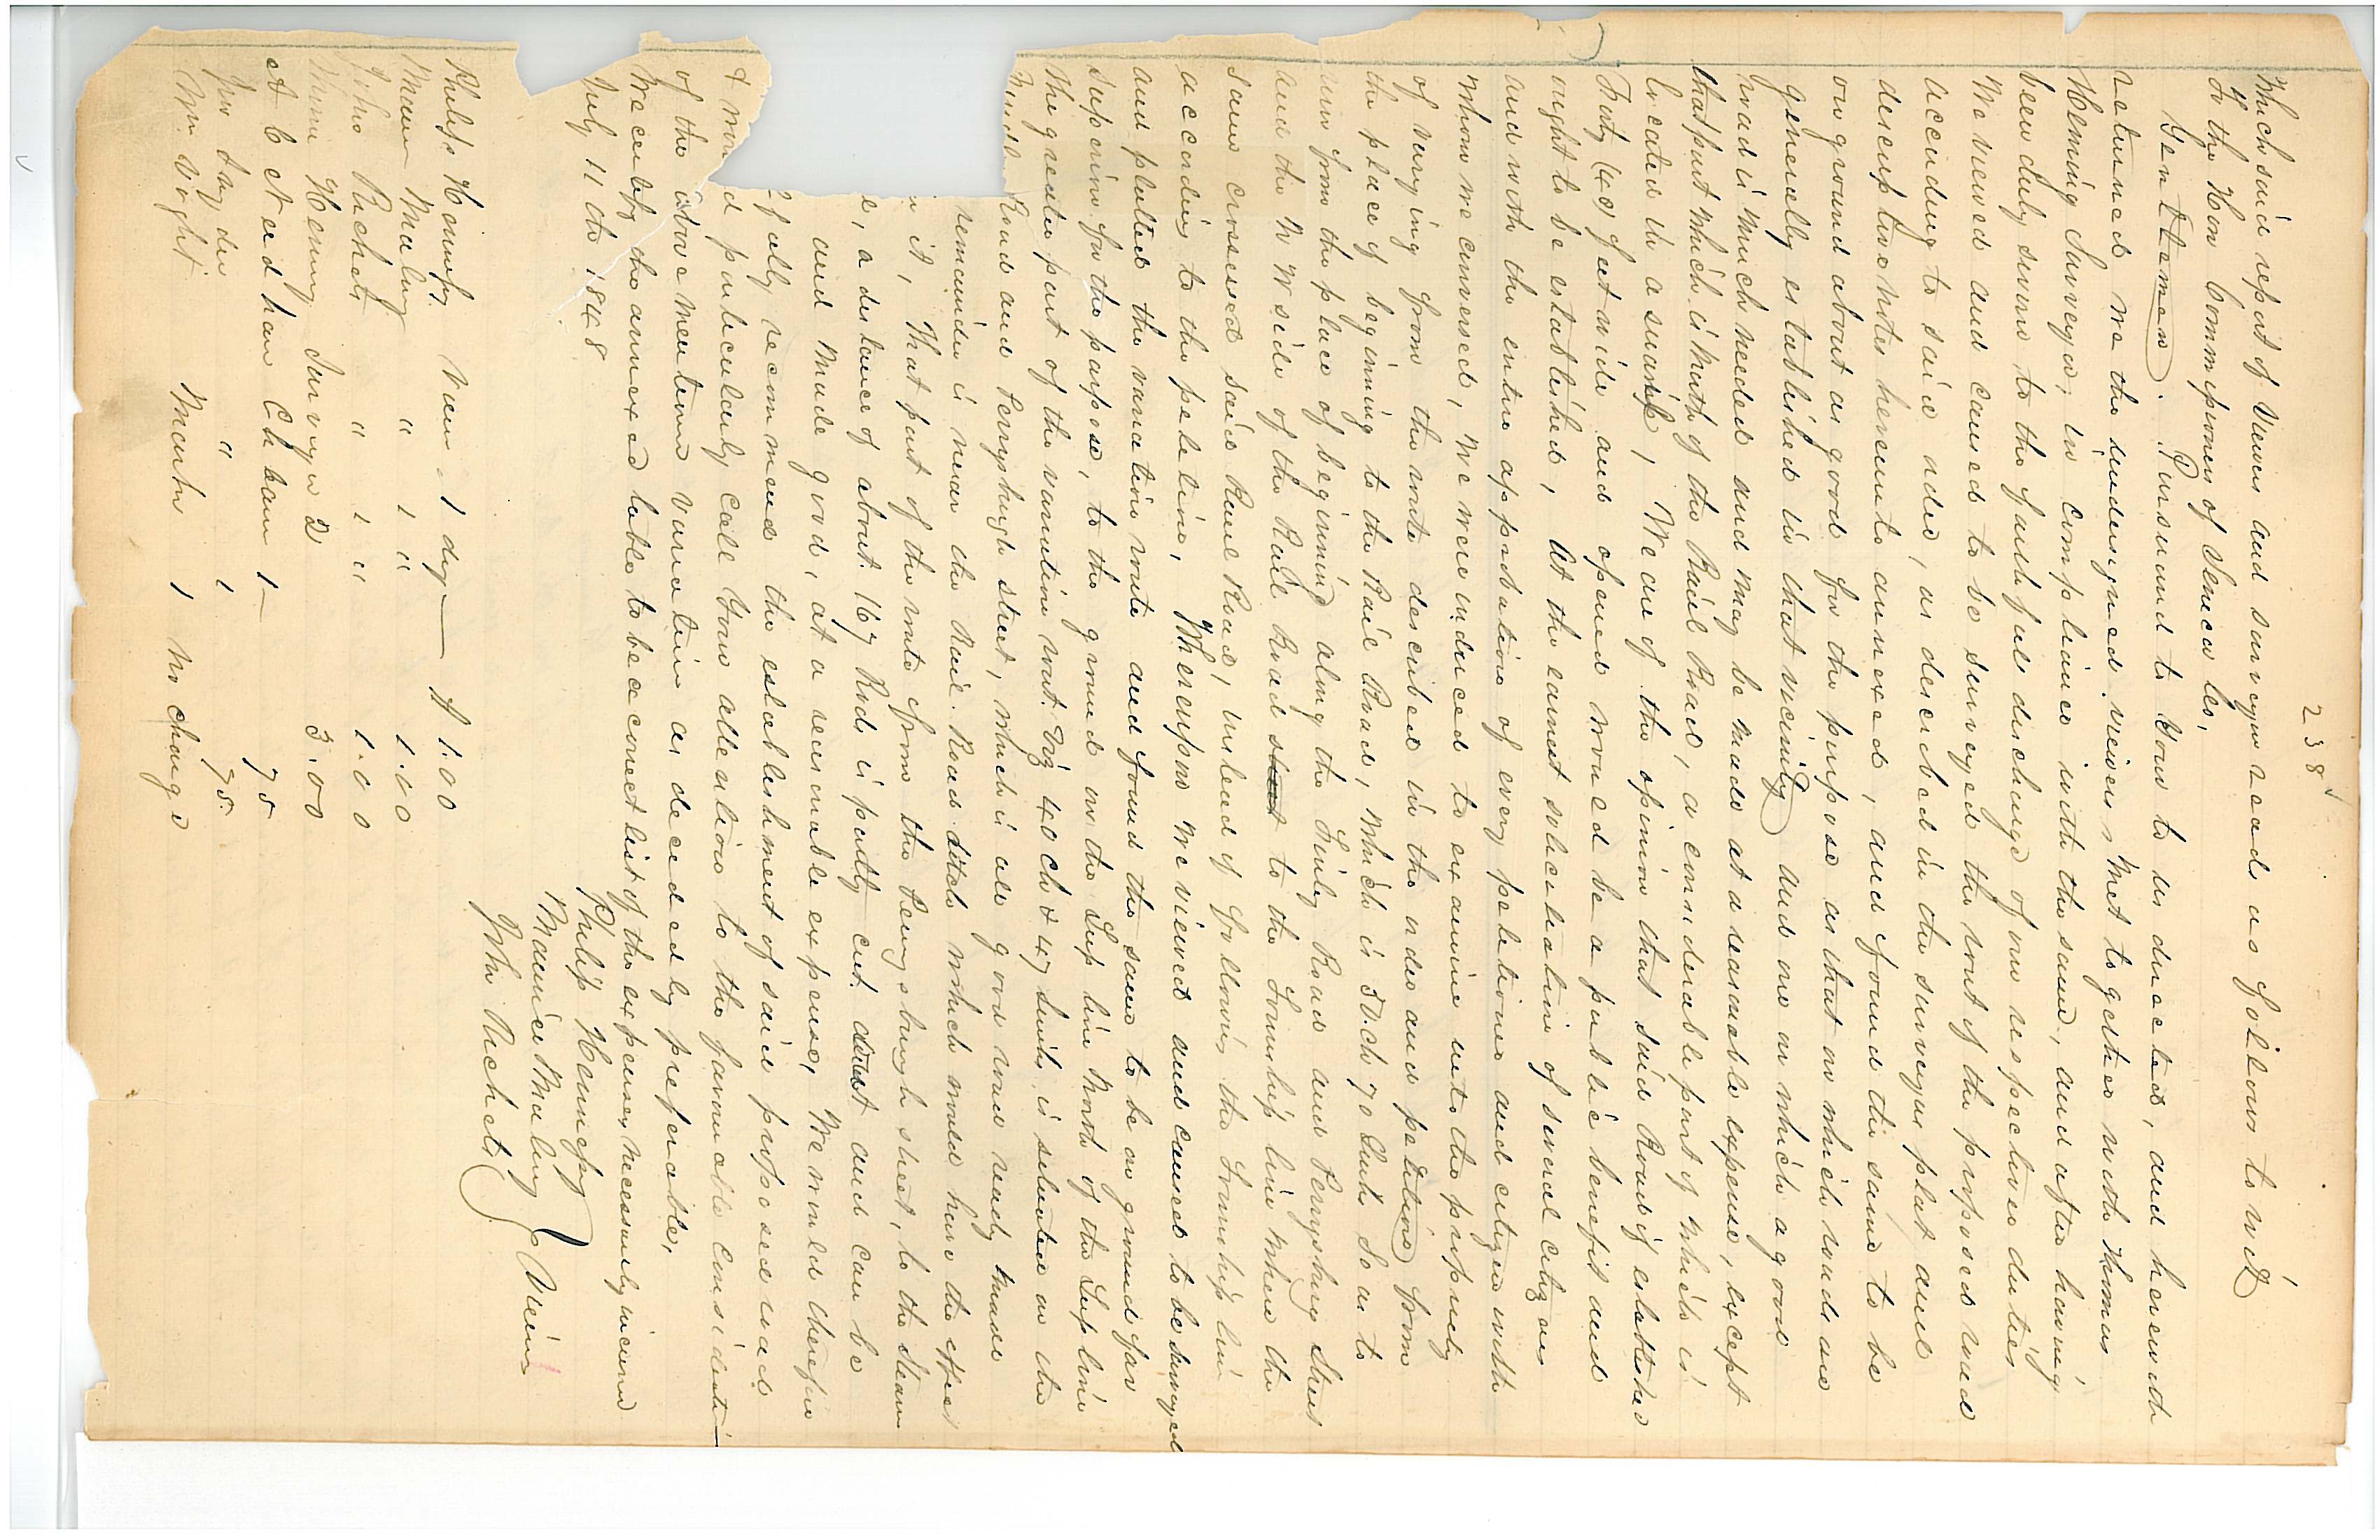 238
Which said report of viewers and surveyor reads as follows to wit
"To the Hon Commissioners of Seneca Co,
Gentlemen. Pursuant to your to us directed, and herewith
returned we the undersigned viewers met together with Thomas
Heming Surveyor, in compliance with the same, and after having
been duly sworn to the faithful discharge of our respective duties
We viewed and caused to be surveyed the rout of the proposed road
according to said order, as described in the surveyors plat and
descriptive notes hereunto annexed, and found the same to be
on ground about as good for the purpose as that on which roads are
generally established in that vicinity and one on which a good
road is much needed and may be made at a reasonable expense, except
that part which is North of the Rail Road, a considerable part of which is
located in a swamp, We are of the opinion that said Road if established
Forty (40) feet wide and opened would be a public benefit and
ought to be established, At the earnest solicitation of several citizens
and with the entire approbation of every petitioner and citizen with
whom we conversed, We were induced to examine into the propriety
of varying from the route described in the order and petition from
the place of beginning to the Rail Road, which is 50.ch 70 links So as to
run from the place of beginning along the Finley Road and Perrysburg Street
and the N W side of the Rail Road street to the Township line where the
same crosses said Rail Road, instead of following the Township line
according to the petition, Whereupon we viewed and caused to be surveyed
and platted the variation route and found the same to be on ground far
superior for the purpose, to the ground on the Twp line North of the Twp line
the greater part of the variation rout. Viz 40 ch & 47 links is situated on the
Road and Perrysburgh street, which is all good road ready made
remainder is near the Rail Road ditch which would have the effect
it, That part of the route from the Perrysburgh street, to the Steam
a distance of about 167 Rods is partly cut out and can be
and made good, at a reasonable expense, We would therefore
fully recommend the establishment of said proposed road
& wo d particularly call your attention to the favourable consideration
of the above mentioned variation as decidedly preferable,
We certify the annexed table to be a correct list of the expenses necessarily incurred
July 11th 1848
Philip Hennefsy
Maurice Maley
John Richets } Viewers
Philip Hennefsy View. 1 day — $ 1.00
Maurice Maley " 1 " 1.00
John Richets " 1 " 1.00
Heming Surveyor 2 3.00
A C Nedham Ch bam 1 — 75
Jno Snyder " 1 75.
Wm Voght Marker 1 no charge